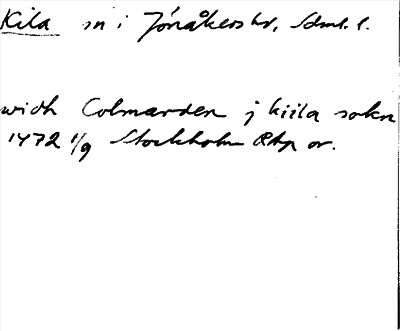 Kila sn i Jönåkers hd, Sdml. l.
widh Colmarden j kiila sokn
1472 1/9 Stockholm RAp or.